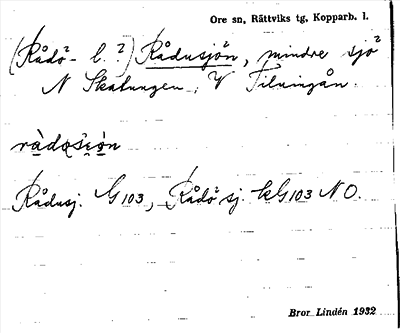 Ore sn, Rättviks tg, Kopparb. l.
(Rådö- l. ?) Rådusjön, mindre sjö
N Skattungen, V Tilningån.
ràdosi̯ọ́n
Rådusj. G 103, Rådösj. kG103 NO.
Bror Lindén 1932